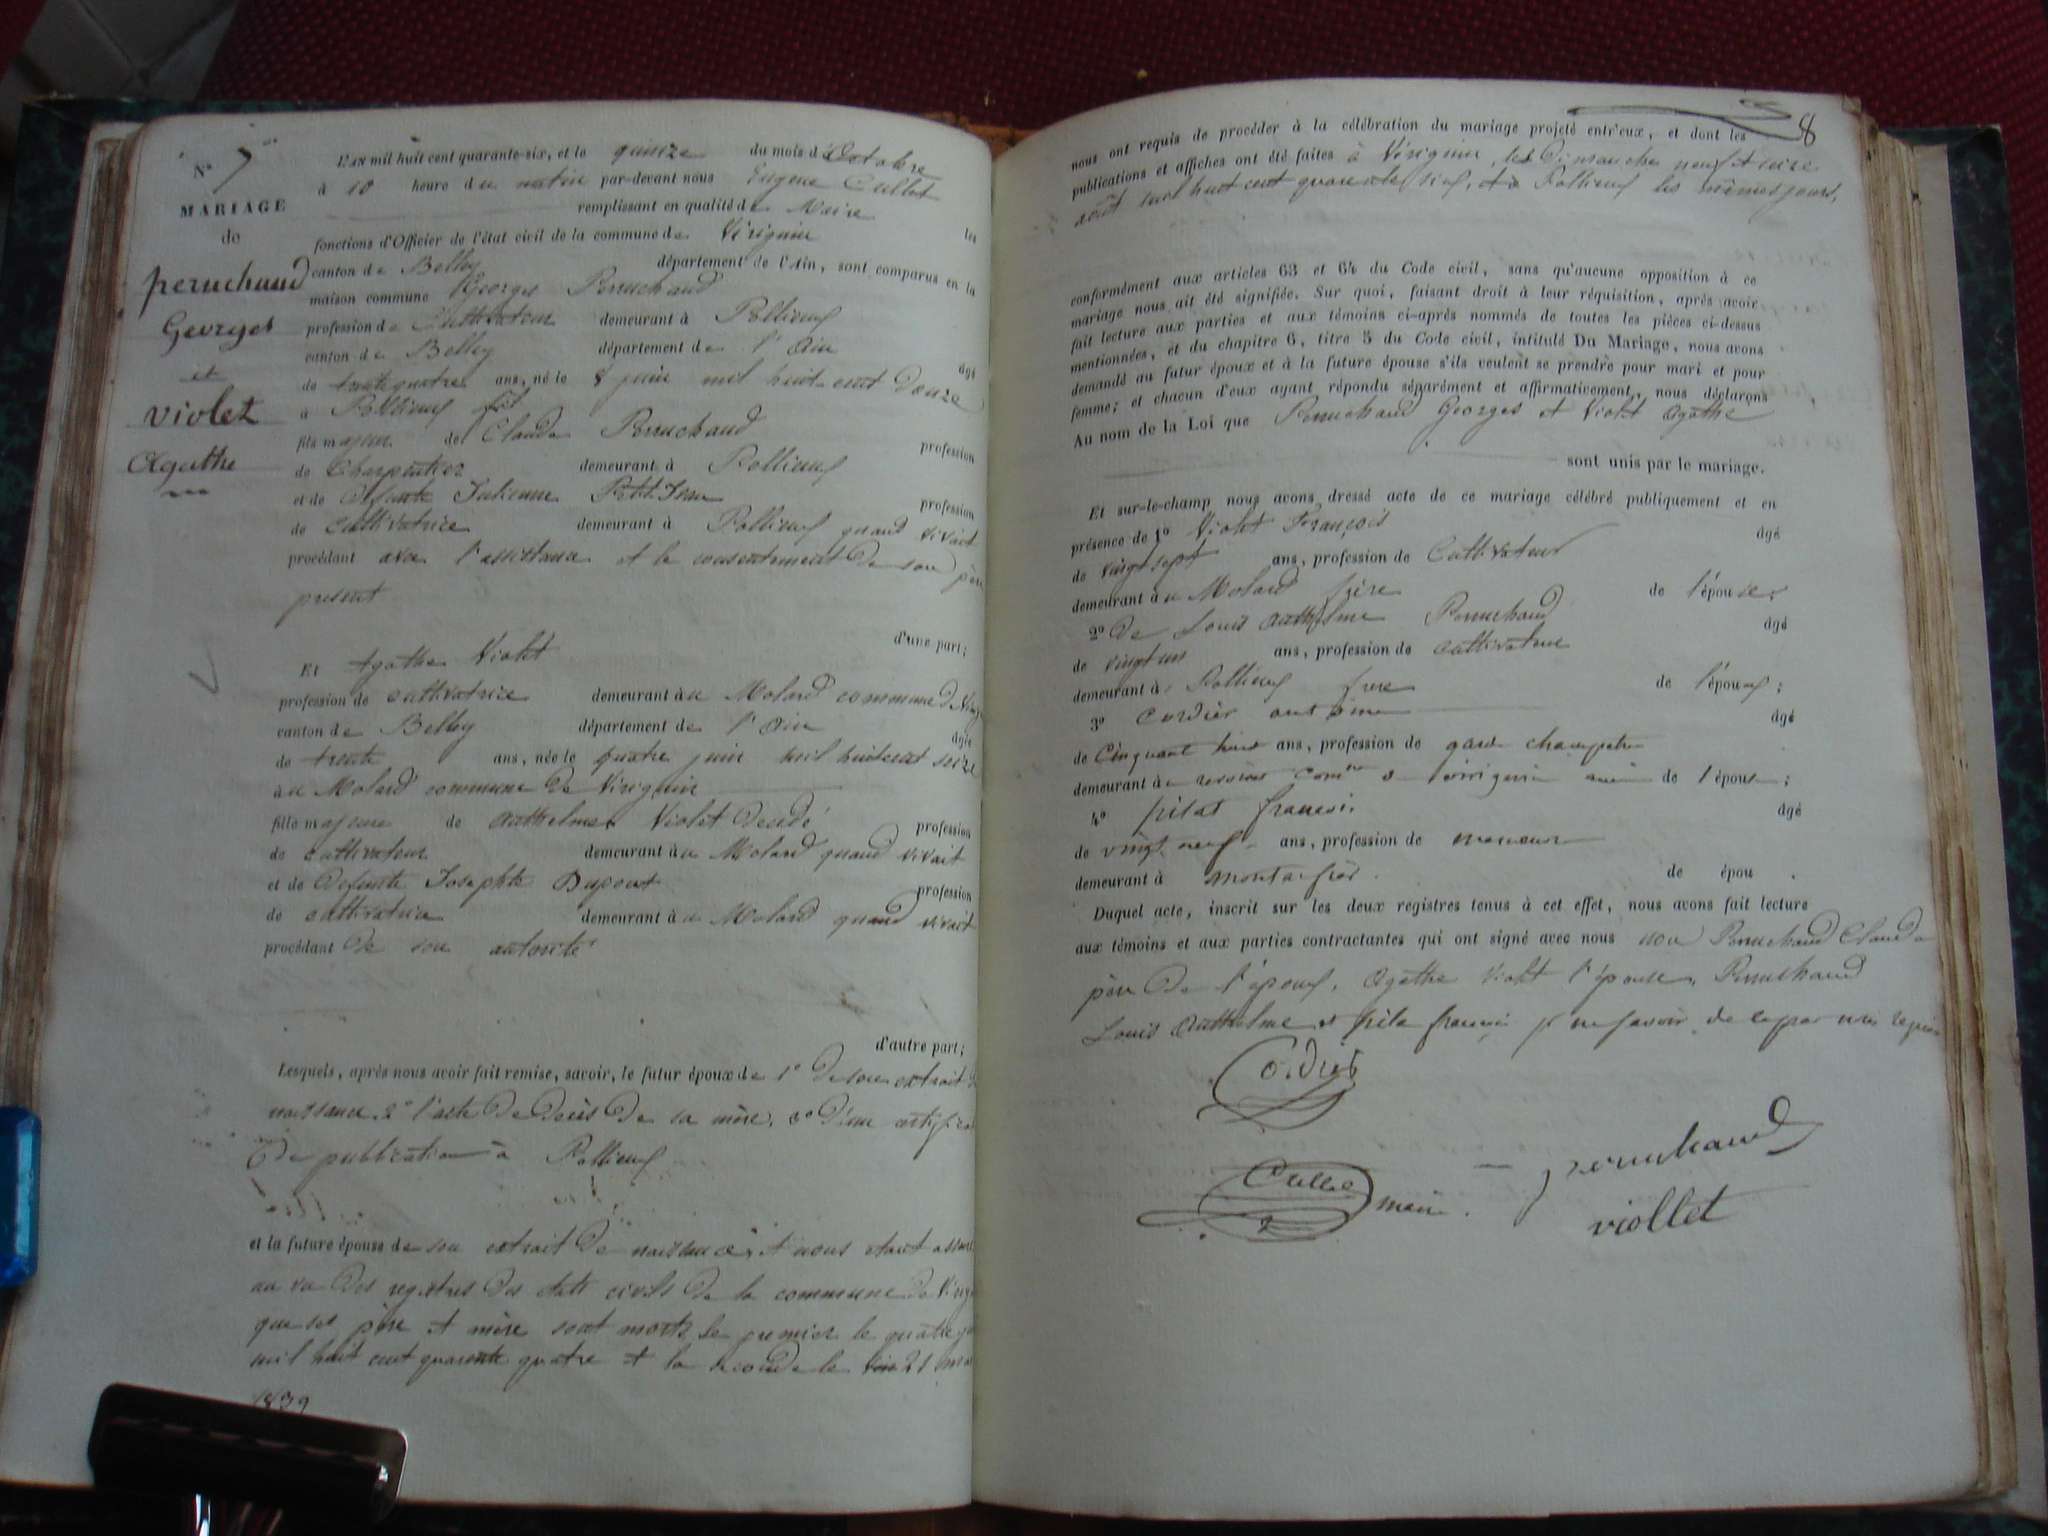 N° 7
MARIAGE
de
perruchaud
Georges
et
violet
Agathe
L'AN mil huit cent quarante-six, et le quinze du mois d'Octobre
à 10 heure du matin par-devant nous Eugène Cullet
remplissant en qualité de Maire les
fonctions d'Officier de l'état civil de la commune de Virignin
canton de Belley département de l'Ain, sont comparus en la
maison commune Georges Perruchaud
profession de Cultivateur demeurant à Pollieux
canton de Belley département de l'Ain âgé
de trente quatre ans, né le 8 juin mil huit-cent douze
à Pollieux fils
fils majeur de Claude Perruchaud profession
de Charpentier demeurant à Pollieux
et de défunte Julienne Petit Jean profession
de cultivatrice demeurant à Pollieux quand vivait
procédant avec l'assistance et le consentement de son père
présent
d'une part;
Et Agathe Violet
profession de cultivatrice demeurant au Molard commune de Virig
canton de Belley département de l'Ain âgée
de trente ans, née le quatre juin mil huitcent seize
au Molard commune de Virignin
fille majeure de Anthelme Violet décédé profession
de cultivateur demeurant au Molard quand vivait
et de défunte Josephte Dupont profession
de cultivatrice demeurant au Molard quand vivait
procédant de son autorité
d'autre part;
Lesquels, après nous avoir fait remise, savoir, le futur époux de 1° de son extrait d
naissance 2° l'acte de décès de sa mère, 3° d'un certifica
de publication à Pollieux
et la future épouse de son extrait de naissance, et nous étant assuré
au vu des registres des états civils de la commune de Virig
que ses père et mère sont morts le premier le quatre
mil huit cent quarante quatre et la seconde le 21 mar
1839
8
nous ont requis de procéder à la célébration du mariage projeté entr'eux, et dont les
publications et affiches ont été faites à Virignin, les dimanches neuf et seize
août mil huit cent quarante six, et à Pollieux les mêmes jours,
conformément aux articles 63 et 64 du Code civil, sans qu'aucune opposition à ce
mariage nous ait été signifiée. Sur quoi, faisant droit à leur réquisition, après avoir
fait lecture aux parties et aux témoins ci-après nommés de toutes les pièces ci-dessus
mentionnées, et du chapitre 6, titre 5 du Code civil, intitulé Du Mariage, nous avons
demandé au futur époux et à la future épouse s'ils veulent se prendre pour mari et pour
femme; et chacun d'eux ayant répondu séparément et affirmativement, nous déclarons
Au nom de la Loi que Perruchaud Georges et Violet Agathe
sont unis par le mariage.
Et sur-le-champ nous avons dressé acte de ce mariage célébré publiquement et en
présence de 1° Violet François âgé
de vingt sept ans, profession de Cultivateur
demeurant au Molard frère de l'épouse,
2° de Louis Anthelme Perruchaud âgé
de vingt un ans, profession de cultivateur
demeurant à Pollieux frère de l'époux;
3° Cordier antoine âgé
de Cinquant huit ans, profession de garde champetre
demeurant à comne de virignin ami de l'épouse;
4° pilat francois âgé
de vingt neuf ans, profession de
demeurant à de épou .
Duquel acte, inscrit sur les deux registres tenus à cet effet, nous avons fait lecture
aux témoins et aux parties contractantes qui ont signé avec nous non Perruchaud Claude
père de l'époux, Agathe Violet l'épouse, Perruchaud
Louis Anthelme et pilat francois p ne savoir de ce par nous requis
Cordier
Cullet maire.
perruchaud
viollet